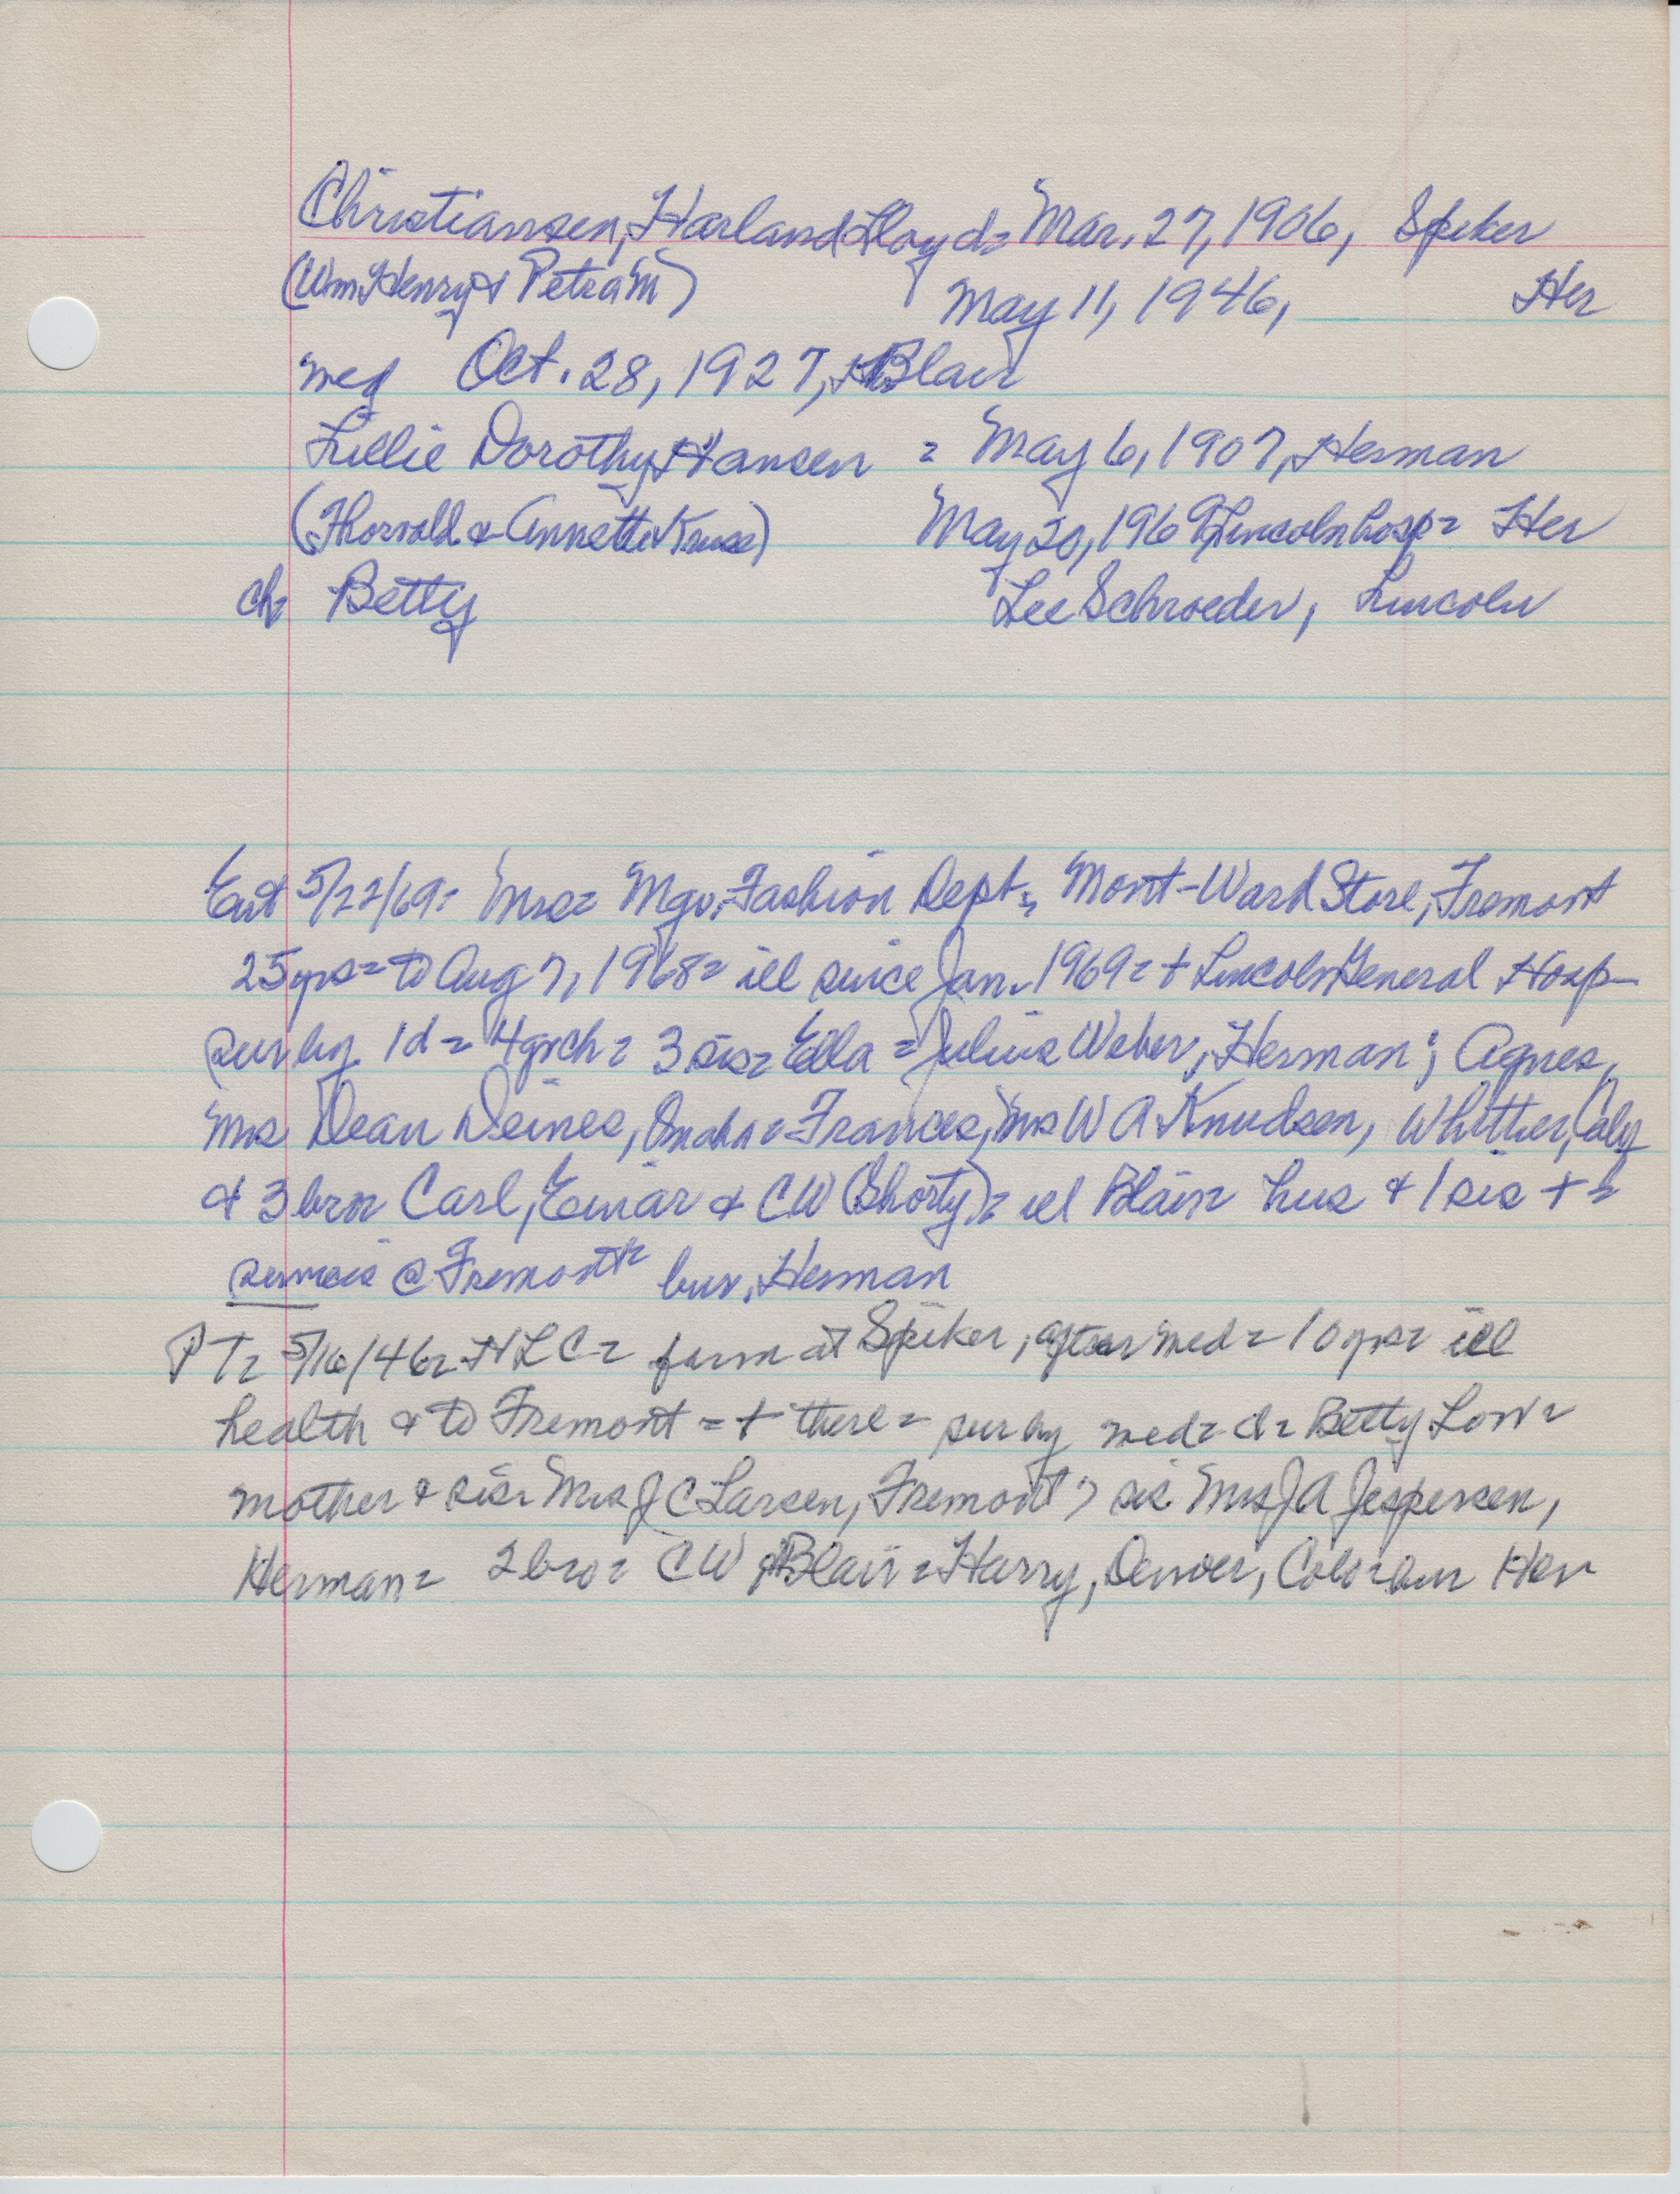 Christiansen, Harland Lloyd = Mar. 27, 1906, Spiker
(Wm Henry & Petra M) May 11, 1946, Her
med Oct. 28, 1927, Blair
Lillie Dorothy Hansen = May 6, 1907, Herman
(Thorvald & Annette Kruse) May 20, 1969, Lincoln hosp = Her
ch Betty Lee Schroeder, Lincoln
Ent 5/22/69: Mrs = Mgr. Fashion Dept, Mont-Ward Store, Fremont
25 yrs = to Aug 7, 1968 = ill since Jan. 1969 = + Lincoln General Hosp-
sur by 1 d = 4 grch = 3 sis = Ella = Julius Weber, Herman; Agnes,
Mrs Dean Deines, Omaha = Frances, Mrs W A Knudsen, Whittier, Calif
& 3 bro = Carl, Einar & CW (Shorty) = Blair = hus & 1 sis + =
services @ Fremont = bur. Herman
PT = 5/16/46 = HLC = farm at Spiker, after med = 10 yrs = ill
health & to Fremont = + there = sur by med = d = Betty Lou =
mother & sis = Mrs J C Larsen, Fremont, sis Mrs J A Jespersen,
Herman = 2 bro = CW, Blair = Harry, Denver, Colo = bur Her